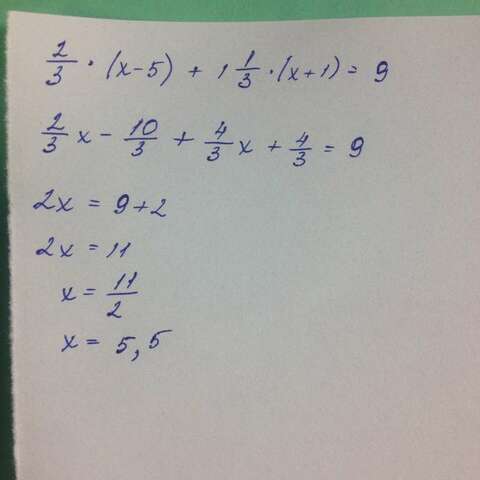 2/3 · (x-5) + 1 1/3 · (x+1) = 9
2/3 x - 10/3 + 4/3 x + 4/3 = 9
2x = 9+2
2x = 11
x = 11/2
x = 5,5